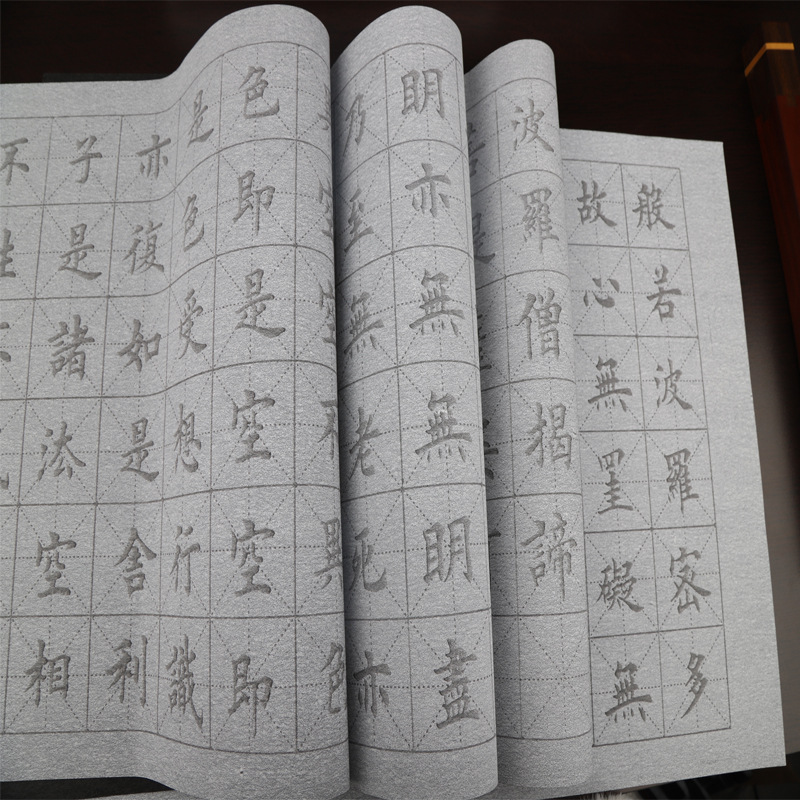 般若波羅密多
故心無罣礙無
波羅僧揭諦
眀亦無無眀盡
乃至無老死亦
異空空不異色
色即是空空即
是色受想行識
亦復如是舍利
子是諸法空相
不生不